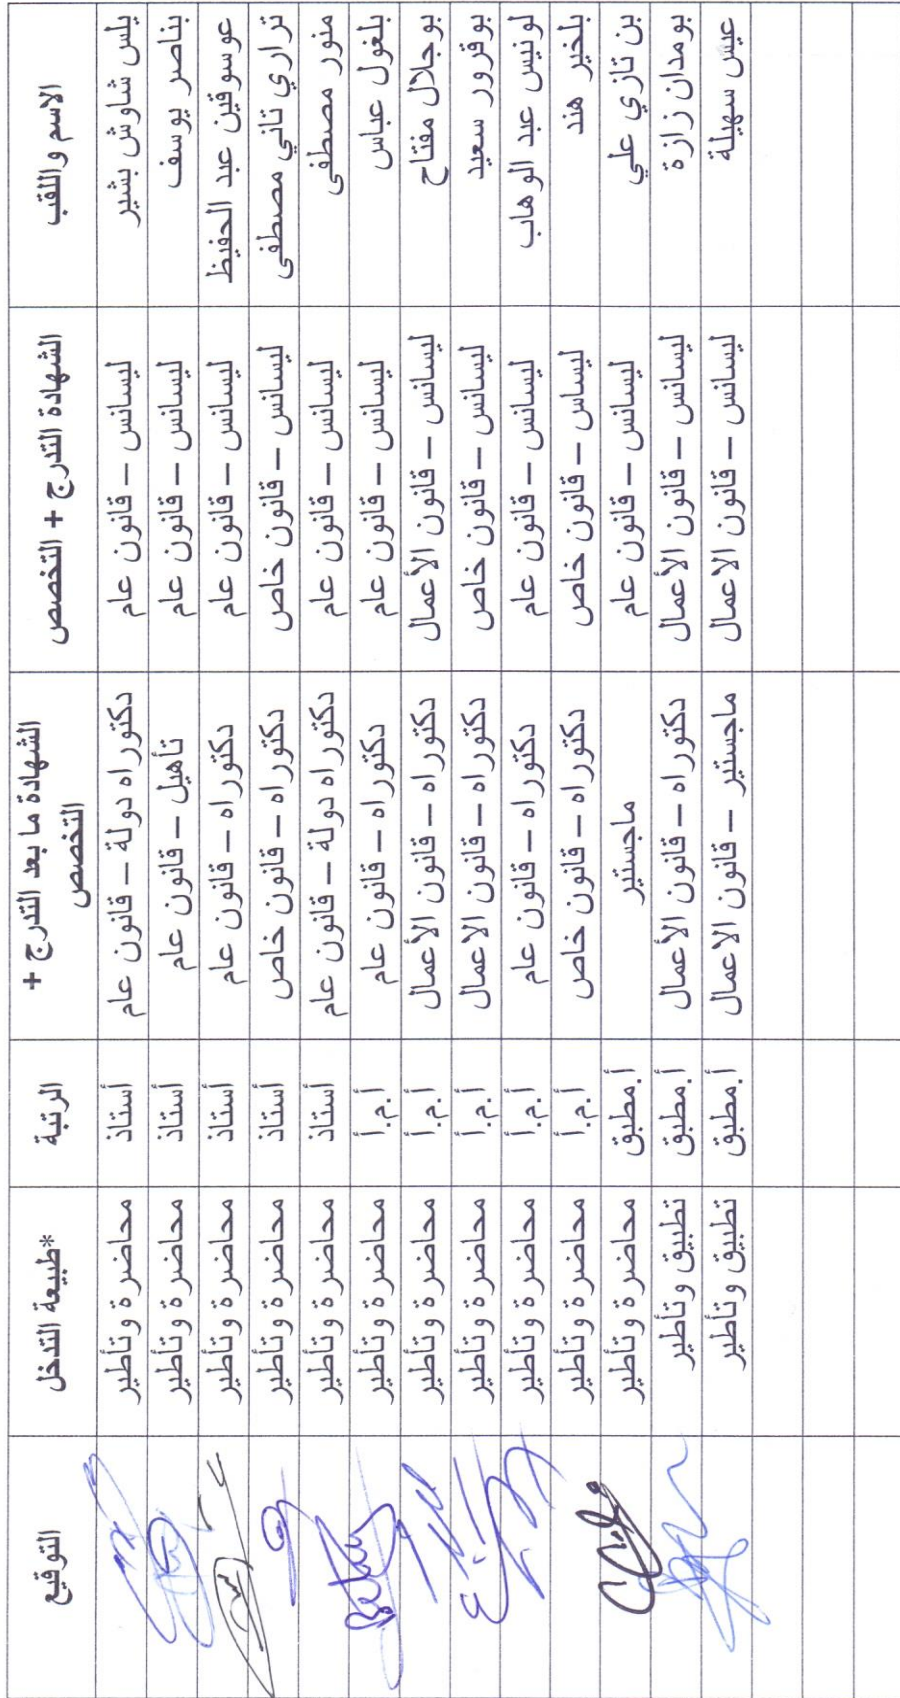 الاسم واللقب الشهادة التدرج + التخصص الشهادة ما بعد التدرج + التخصص الرتبة *طبيعة التدخل التوقيع
يلس شاوش بشير ليسانس – قانون عام دكتوراه دولة – قانون عام أستاذ محاضرة وتأطير
بناصر يوسف ليسانس – قانون عام تأهيل – قانون عام أستاذ محاضرة وتأطير
عوسوقين عبد الحفيظ ليسانس – قانون عام دكتوراه – قانون عام أستاذ محاضرة وتأطير
تراري تاني مصطفى ليسانس – قانون خاص دكتوراه – قانون خاص أستاذ محاضرة وتأطير
منور مصطفى ليسانس – قانون عام دكتوراه دولة – قانون عام أستاذ محاضرة وتأطير
بلغول عباس ليسانس – قانون عام دكتوراه – قانون عام أ.م.أ محاضرة وتأطير
بوجلال مفتاح ليسانس – قانون الأعمال دكتوراه – قانون الأعمال أ.م.أ محاضرة وتأطير
بوقرور سعيد ليسانس – قانون خاص دكتوراه – قانون الاعمال أ.م.أ محاضرة وتأطير
لونيس عبد الوهاب ليسانس – قانون عام دكتوراه – قانون عام أ.م.أ محاضرة وتأطير
بلخير هند ليساس – قانون خاص دكتوراه – قانون خاص أ.م.أ محاضرة وتأطير
بن تازي علي ليسانس – قانون عام ماجستير أ.مطبق محاضرة وتأطير
بومدان زازة ليسانس – قانون الأعمال دكتوراه – قانون الأعمال أ.مطبق تطبيق وتأطير
عيس سهيلة ليسانس – قانون الاعمال ماجستير – قانون الاعمال أ.مطبق تطبيق وتأطير